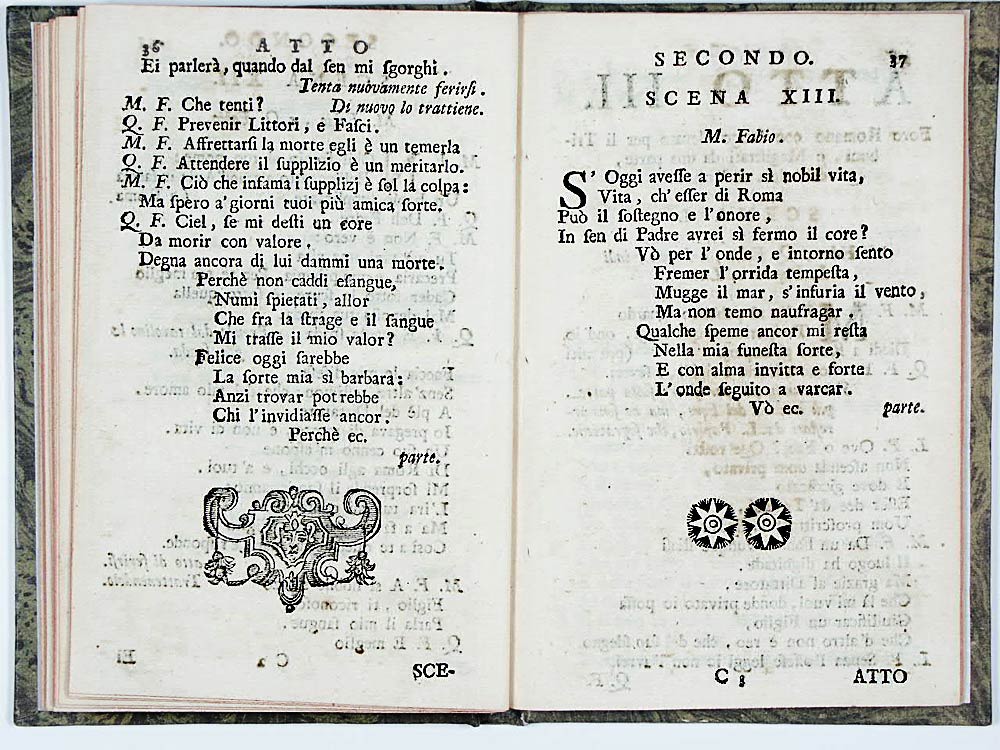 36 ATTO
Ei parlerà, quando dal ſen mi sgorghi.
Tenta nuovamente ferirſi.
M. F. Che tenti? Di nuovo lo trattiene.
Q. F. Prevenir Littori, e Faſci.
M. F. Affrettarſi la morte egli è un temerla
Q. F. Attendere il ſupplizio è un meritarlo.
M. F. Ciò che infama i ſupplizj è ſol la colpa:
Ma ſpero a' giorni tuoi più amica ſorte.
Q. F. Ciel, ſe mi deſti un core
Da morir con valore,
Degna ancora di lui dammi una morte.
Perchè non caddi eſangue,
Numi ſpietati, allor
Che fra la ſtrage e il ſangue
Mi traſſe il mio valor?
Felice oggi ſarebbe
La ſorte mia sì barbara:
Anzi trovar potrebbe
Chi l'invidiaſſe ancor.
Perchè ec.
parte.
SCE-
SECONDO. 37
SCENA XIII.
M. Fabio.
S' Oggi aveſſe a perir sì nobil vita,
Vita, ch'eſſer di Roma
Può il ſoſtegno e l'onore,
In ſen di Padre avrei sì fermo il core?
Vò per l'onde, e intorno ſento
Fremer l'orrida tempeſta,
Mugge il mar, s'infuria il vento,
Ma non temo naufragar.
Qualche ſpeme ancor mi reſta
Nella mia funeſta ſorte,
E con alma invitta e forte
L'onde ſeguito a varcar.
Vò ec. parte.
C 3 ATTO